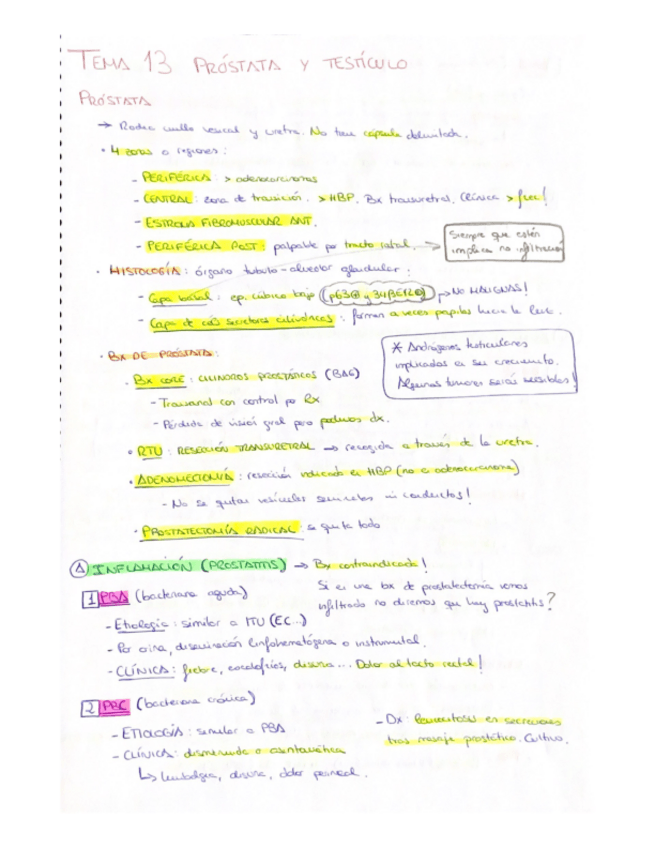 TEMA 13 PRÓSTATA Y TESTÍCULO
PRÓSTATA
→ Rodea cuello vesical y uretra. No tiene cápsula delimitada.
· 4 zonas o regiones:
- PERIFÉRICA: > adenocarcinomas
- CENTRAL: zona de transición. > HBP. Bx transuretral. Clínica > frec!
- ESTROMA FIBROMUSCULAR ANT.
- PERIFÉRICA POST: palpable por tracto rectal. →
Siempre que estén
implica no infiltración
· HISTOLOGÍA: órgano túbulo-alveolar glandular:
- Capa basal: ep. cúbico bajo (p63⊕ y 34βE12⊕) → NO MALIGNAS!
- Capa de céls secretoras cilíndricas: forman a veces papilas hacia la luz.
* Andrógenos testiculares
implicados en su crecimiento.
Algunos tumores serán sensibles!
· BX DE PRÓSTATA:
· BX CORE: CILINDROS PROSTÁTICOS (BAG)
- Transanal con control por Rx
- Pérdida de visión gral pero podemos dx.
· RTU: RESECCIÓN TRANSURETRAL → recogida a través de la uretra.
· ADENOMECTOMÍA: resección indicada en HBP (no en adenocarcinoma)
- No se quitan vesículas seminales ni conductos!
· PROSTATECTOMÍA RADICAL: se quita todo
A INFLAMACIÓN (PROSTATITIS) → Bx contraindicada!
Si en una bx de prostatectomía vemos
infiltrado no diremos que hay prostatitis?
1 PBA (bacteriana aguda)
- Etiología: similar a ITU (EC...)
- Por orina, diseminación linfohematógena o instrumental.
- CLÍNICA: fiebre, escalofríos, disuria... Dolor al tacto rectal!
2 PBC (bacteriana crónica)
- ETIOLOGÍA: similar a PBA
- CLÍNICA: disminuida o asintomática
↳ lumbalgia, disuria, dolor perineal.
- Dx: leucocitosis en secreciones
tras masaje prostático. Cultivo.